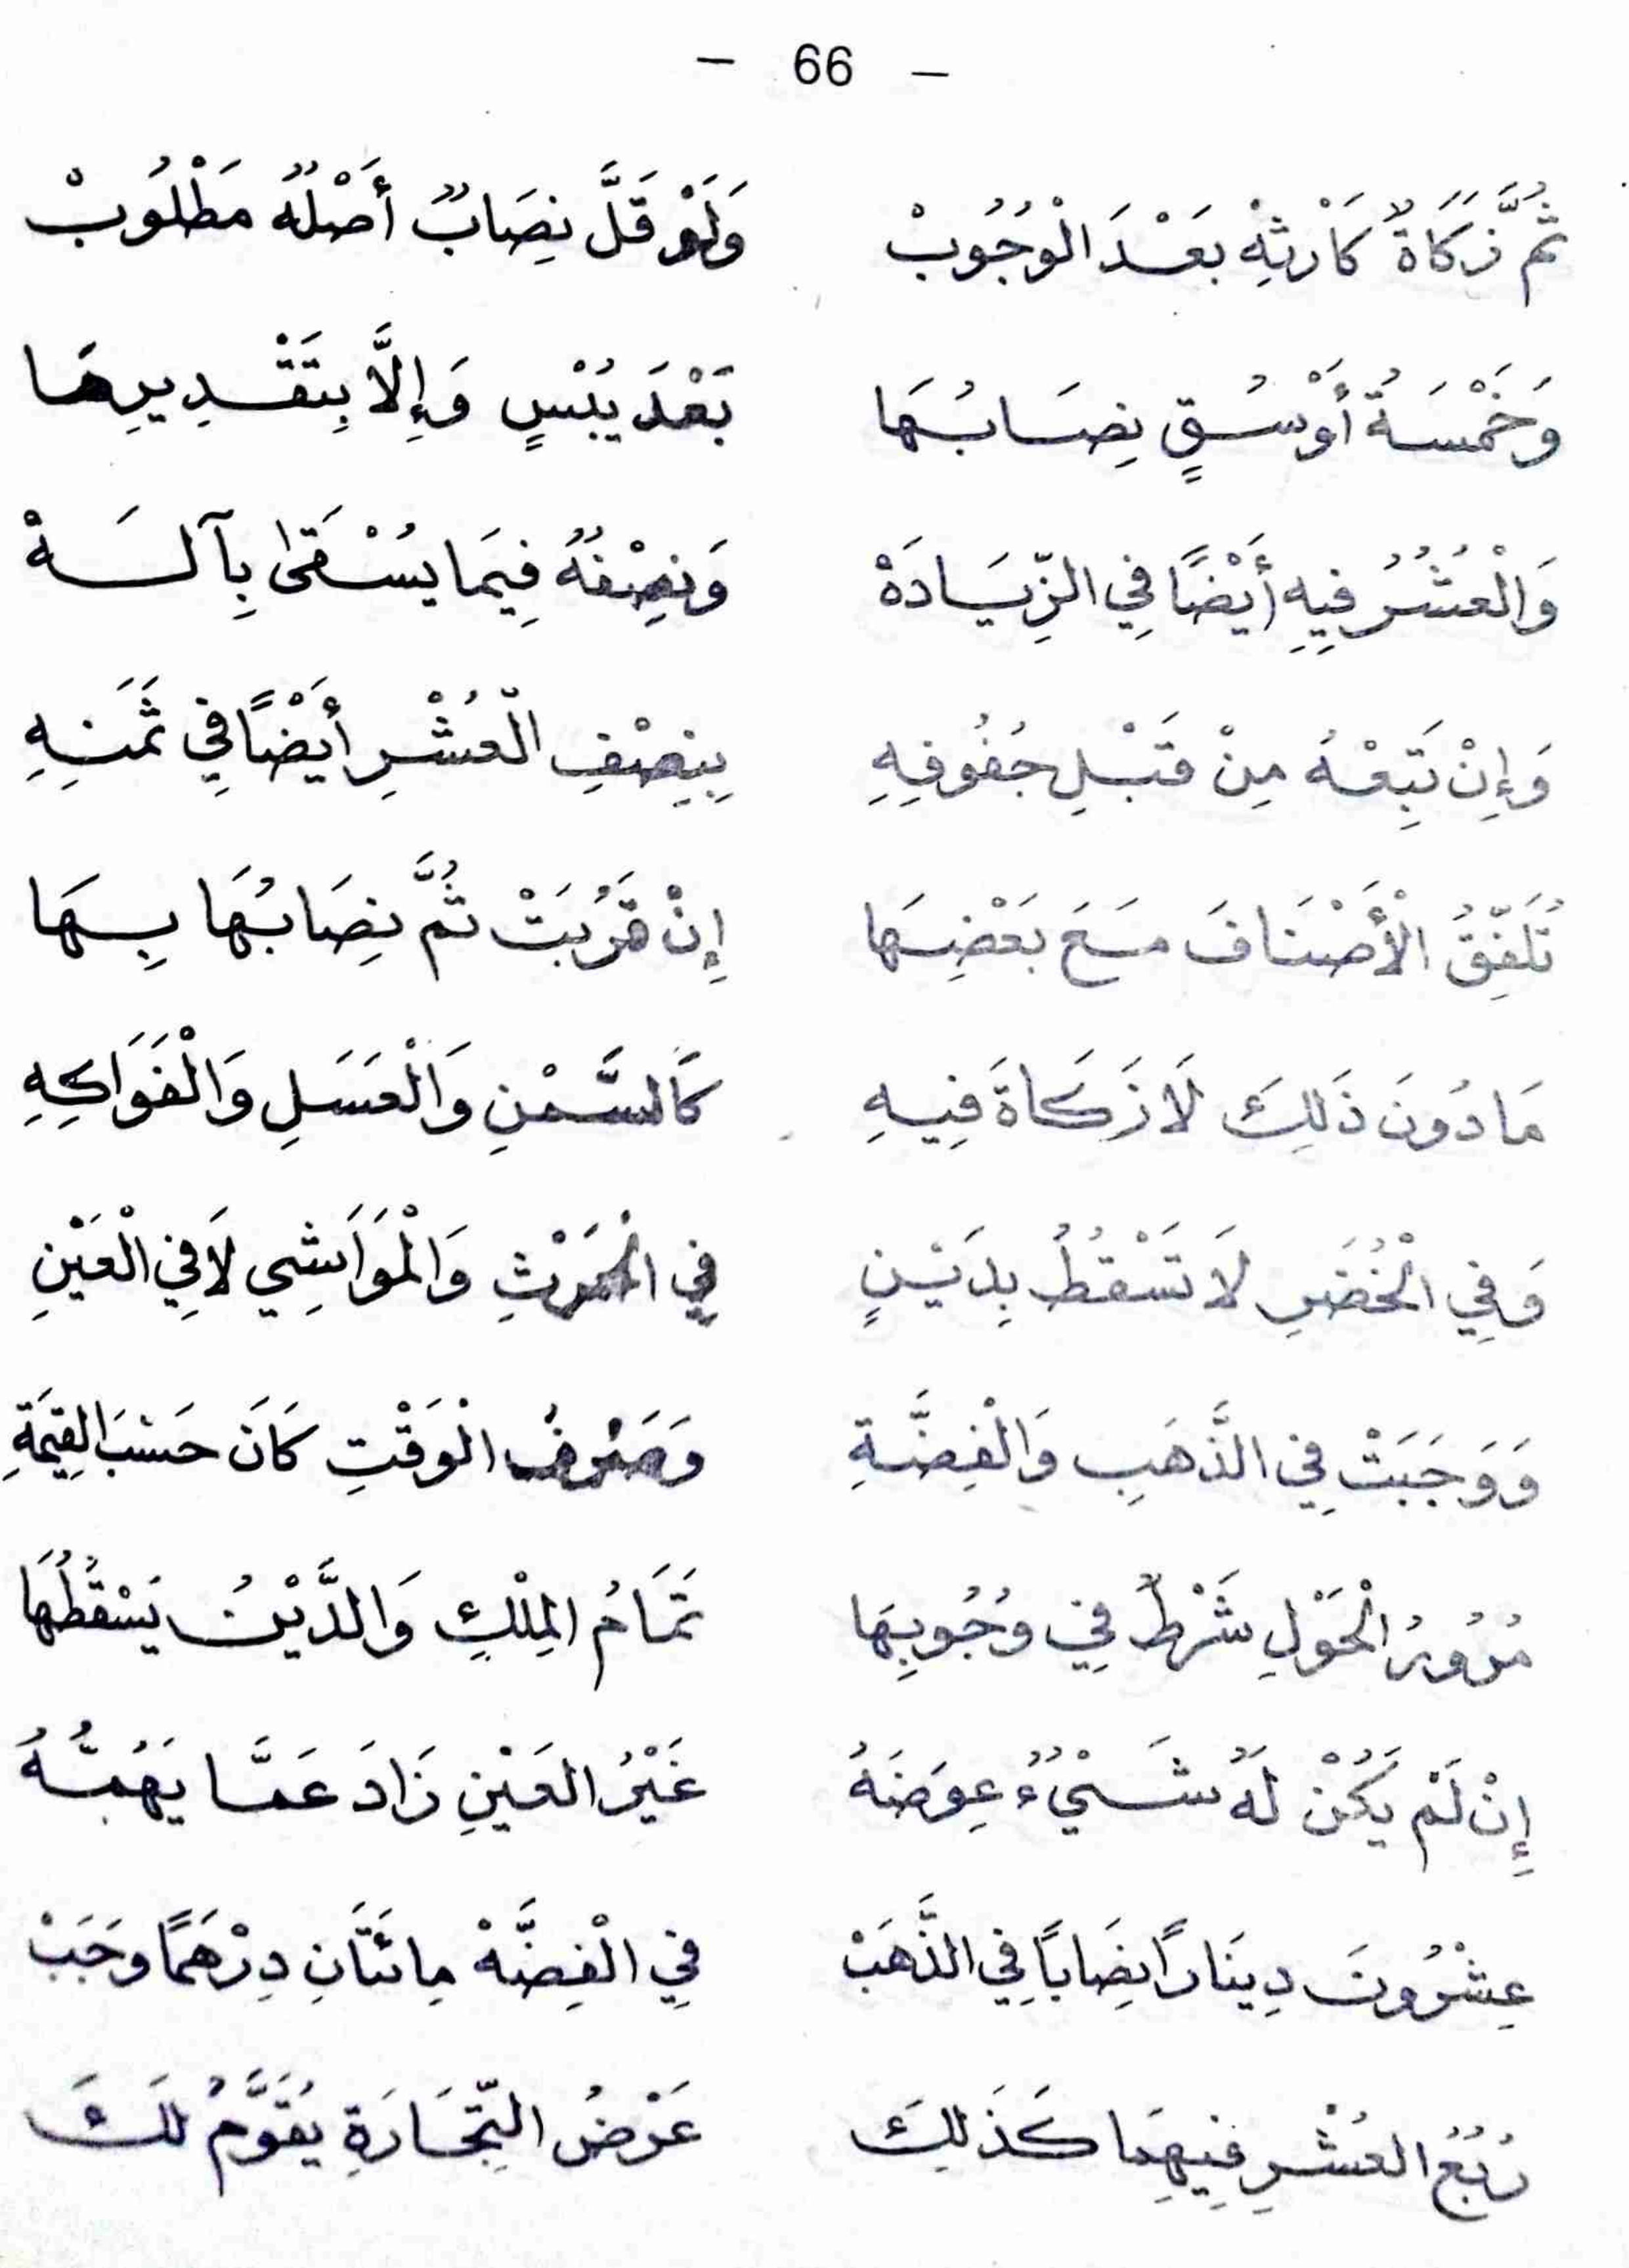 - 66 -
ثُمَّ زَكَاةٌ كَارْثِهِ بَعْدَ الْوُجُوبْ وَلَوْ قَلَّ نِصَابٌ أَصْلُهُ مَطْلُوبْ
وَخَمْسَةُ أَوْسُقٍ نِصَابُهَا بَعْدَ يُبْسٍ وَإِلَّا بِتَقْدِيرِهَا
وَالْعُشُرُ فِيهِ أَيْضًا فِي الزِّيَادَهْ وَنِصْفُهُ فِيمَا يُسْقَى بِآلَهْ
وَإِنْ تَبِعْهُ مِنْ قَبْلِ جُفُوفِهِ بِنِصْفِ الْعُشْرِ أَيْضًا فِي ثَمَنِهِ
تُلَفِّقُ الْأَصْنَافَ مَعَ بَعْضِهَا إِنْ قَرُبَتْ ثُمَّ نِصَابُهَا بِهَا
مَا دُونَ ذَلِكَ لَا زَكَاةَ فِيهِ كَالسَّمْنِ وَالْعَسَلِ وَالْفَوَاكِهِ
وَفِي الْخُضَرِ لَا تَسْقُطُ بِدَيْنٍ فِي الْحَرْثِ وَالْمَوَاشِي لَا فِي الْعَيْنِ
وَوَجَبَتْ فِي الذَّهَبِ وَالْفِضَّةِ وَصَرْفُ الْوَقْتِ كَانَ حَسْبَ الْقِيمَةِ
مُرُورُ الْحَوْلِ شَرْطٌ فِي وُجُوبِهَا تَمَامُ الْمِلْكِ وَالدَّيْنُ يَسْقُطُهَا
إِنْ لَمْ يَكُنْ لَهُ شَيْءٌ عِوَضَهُ غَيْرُ الْعَيْنِ زَادَ عَمَّا يَهُمُّهُ
عِشْرُونَ دِينَارًا نِصَابًا فِي الذَّهَبْ فِي الْفِضَّهْ مِائَتَانِ دِرْهَمًا وَجَبْ
رُبُعُ الْعُشْرِ فِيهِمَا كَذَلِكَ عَرْضُ التِّجَارَةِ يُقَوَّمُ لَكَ